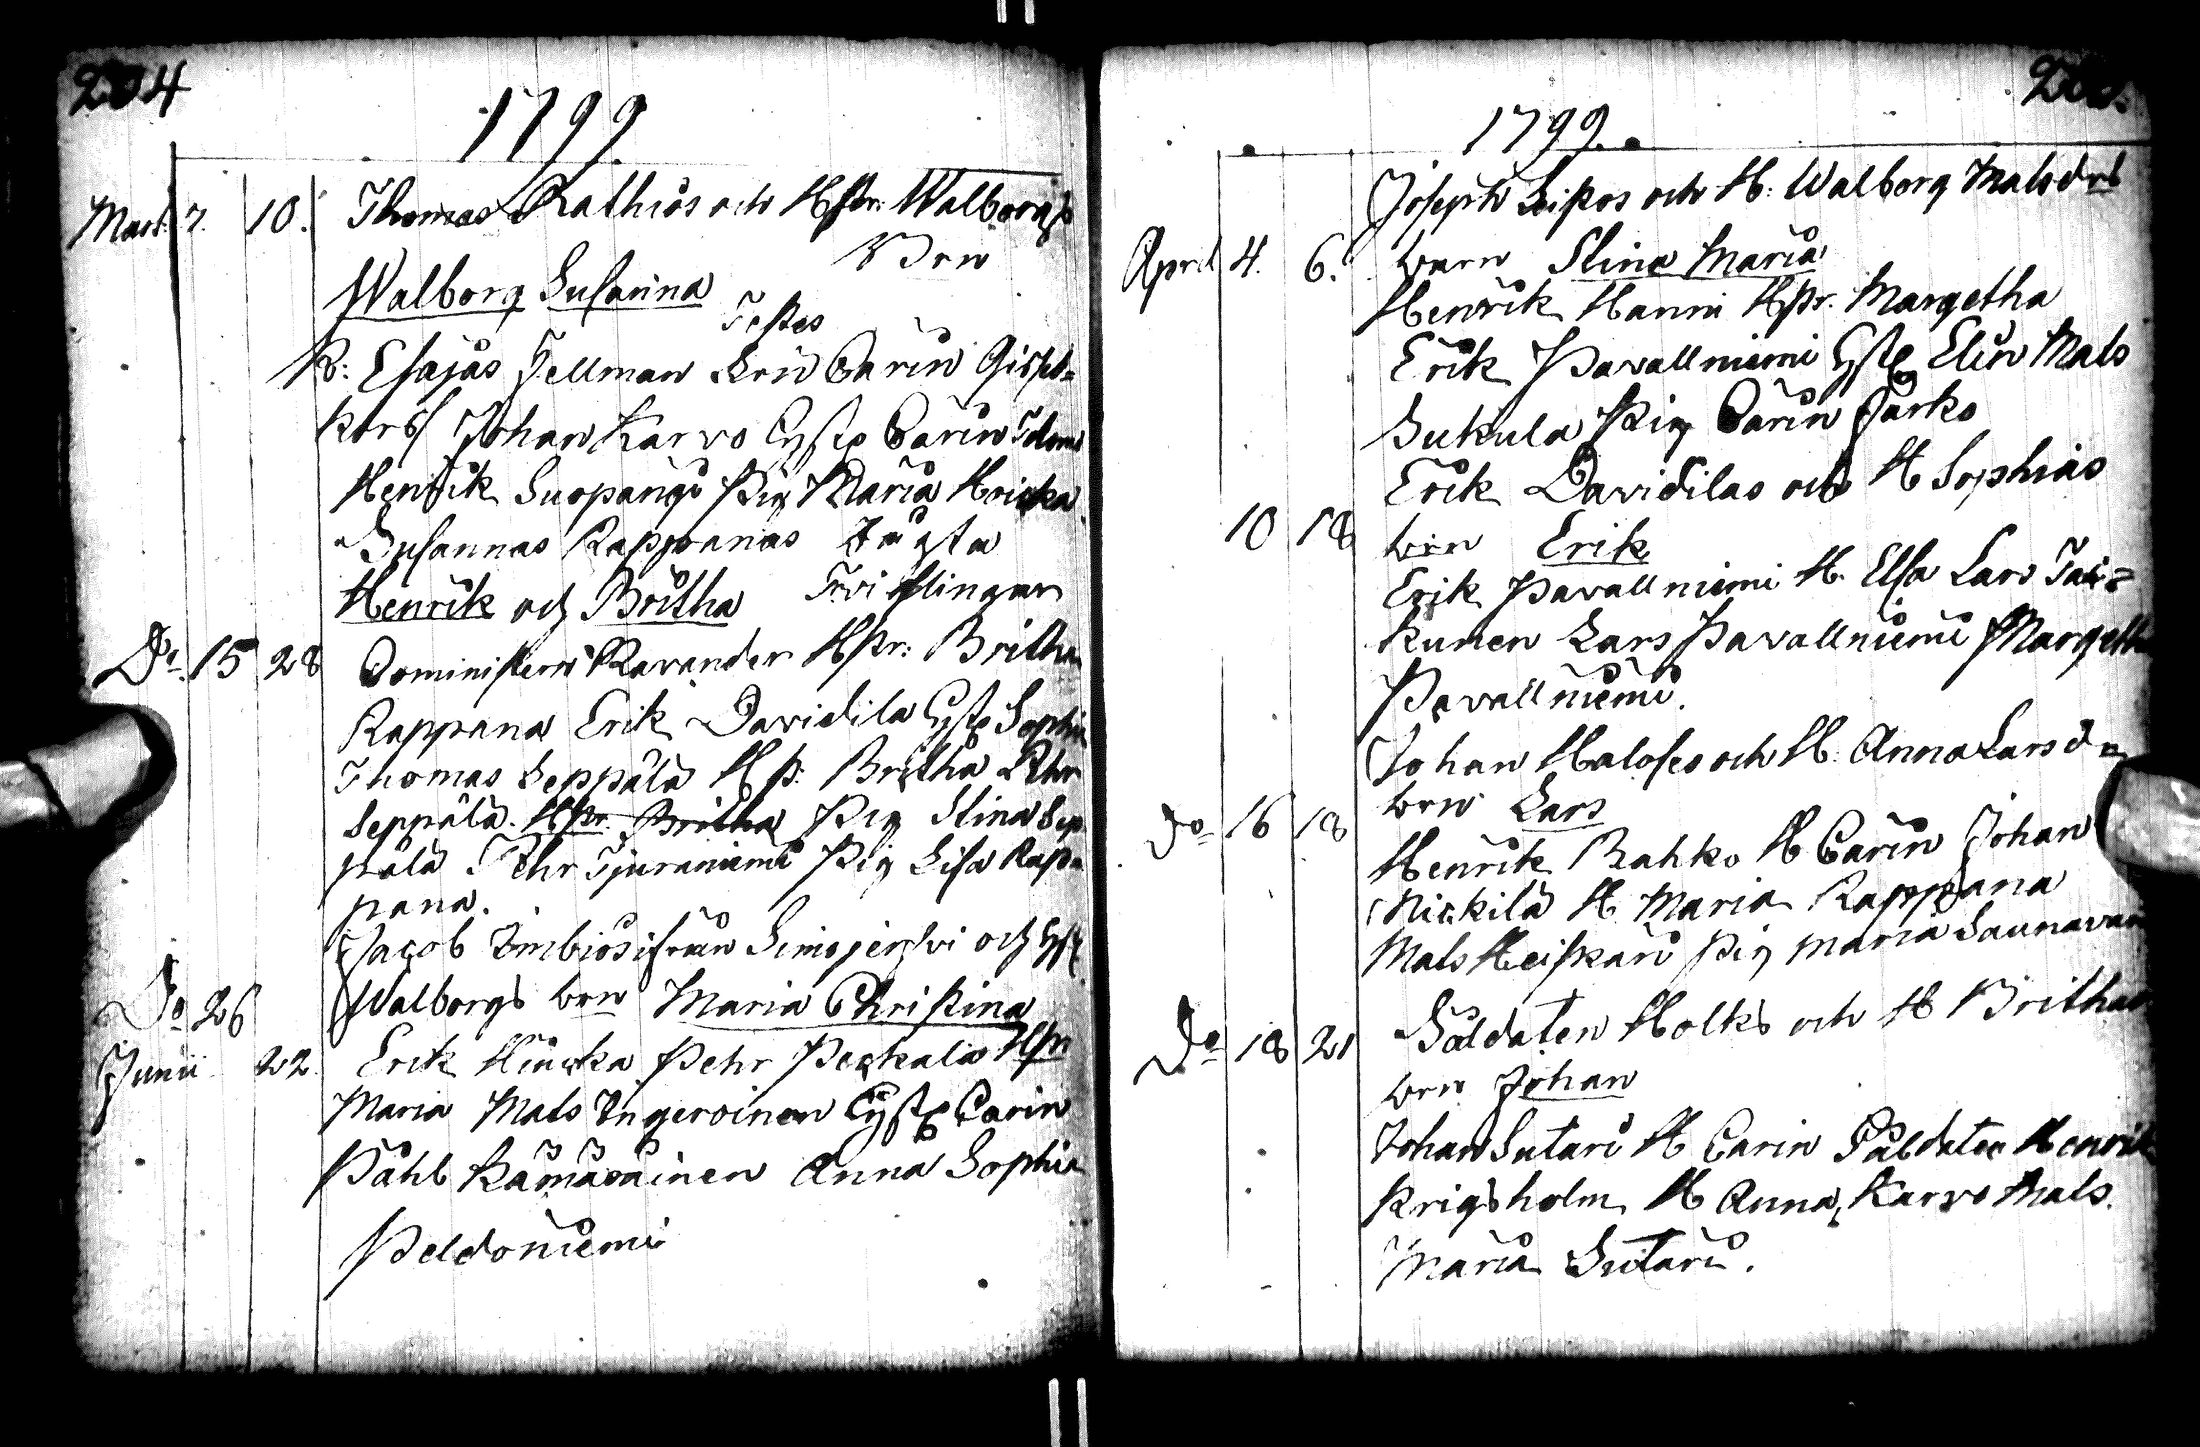 204
1799.
Mart. 7. 10. Thomas Rathios och Hstr. Walborgs
Brn
Walborg Susanna
Testes
K: Esajas Fellman Brn Carin
Johan Karvo Cyst Carin
Henrik Suopangi Pig Maria
Susannas Rappanas
Henrik och Britha Tvillingar
Do 15 28 Ravander Hstr: Britha
Rappana Erik Davidila Cyst Sophia
Thomas Seppälä Hst: Britha Pehr
Seppälä. Hstr. Britha Pig Stina Sep
pälä Pehr Tjuraniemi Pig Lisa Rap-
pana.
Jacob Imbiös ifrån Simojerfvi och Hst
Do 26 Walborgs brn Maria Christina
Junii 22. Erik Hiucka Pehr Peckala Hstr
Maria Mats Ingeroinen Cyst Carin
Påhl Kämäräinen Anna Sophia
Peldoniemi
1799.
Joseph Leipos och H: Walborg Matsdrs
April 4. 6. barn Stina Maria
Henrik Hanni Hstr. Margetha
Erik Pavallniemi Cyst Elin Mats
Sukula Pig Carin Jarko
Erik Davidilas och H Sophias
10 18 brn Erik
Erik Pavallniemi H. Elsa Lars Tai-
kunen Lars Pavallniemi Margetha
Pavallniemi.
Johan Haloses och H. Anna Larsd-
Do 16 18 brn Lars
Henrik Rahko H Carin Johan
Nickilä H Maria Rappana
Mats Heiskari Pig Maria Saunavara
Do 18 21 Soldaten Holks och H Brithas
brn Johan
Johan Sutari H Carin Soldaten Henrik
Krigsholm H Anna, Karvo Mats.
Maria Sutari.